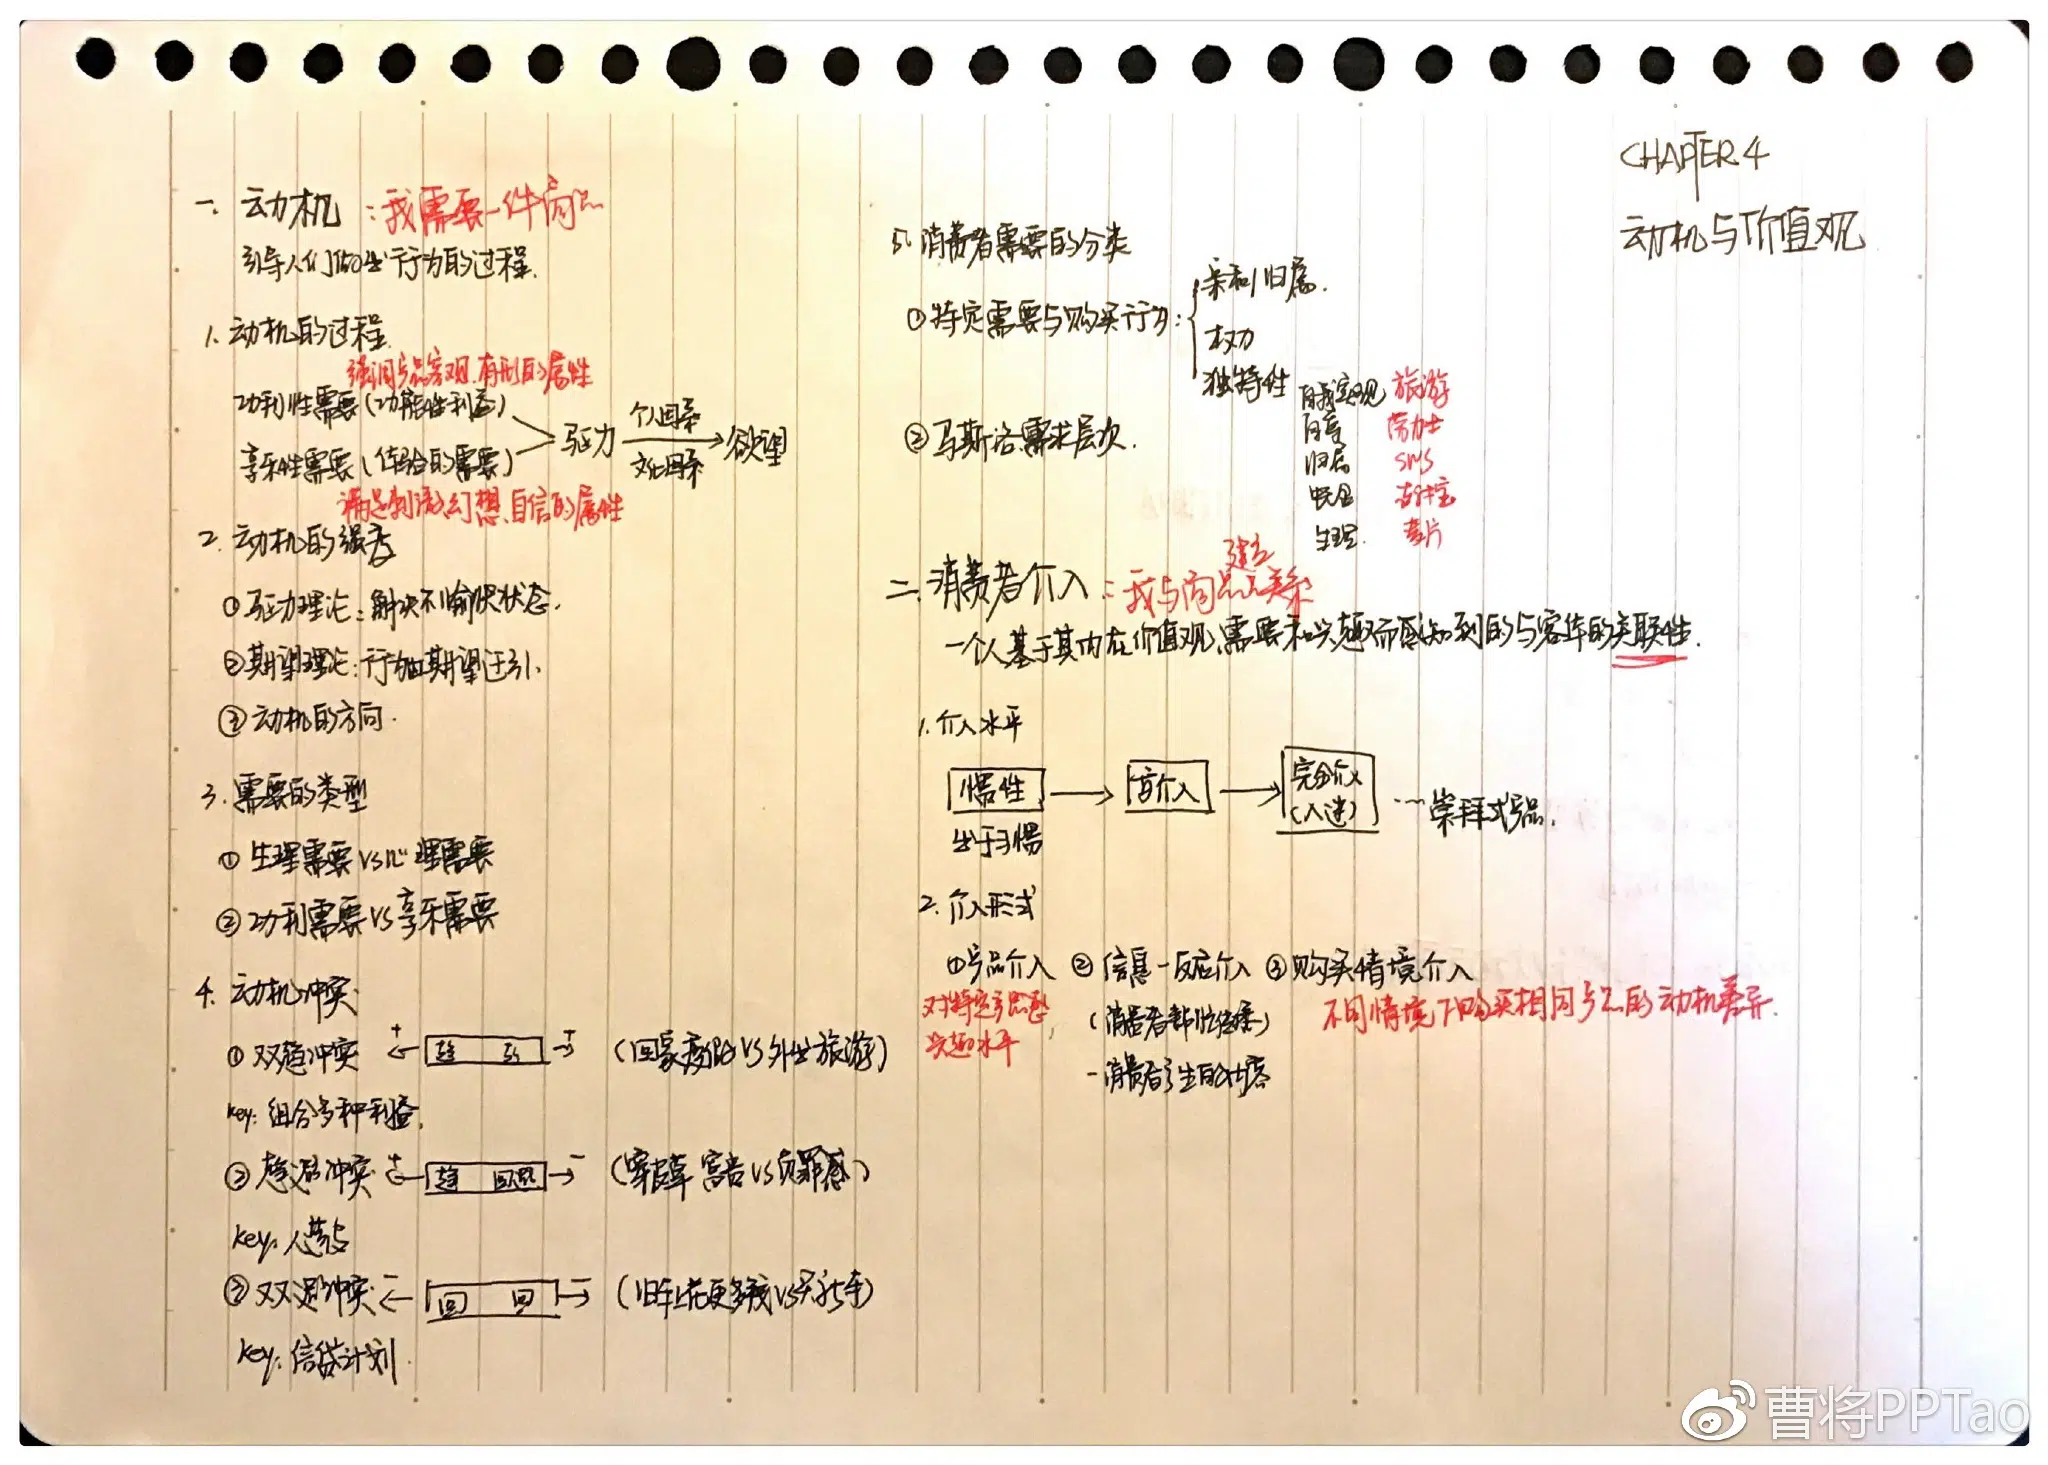 CHAPTER 4
动机与价值观
一. 动机：我需要一件商品
引导人们做出行为的过程.
1. 动机的过程
强调产品客观、有形的属性
功利性需要(功能性利益)
享乐性需要(体验的需要)
驱力
个人因素
文化因素
欲望
满足刺激、幻想、自信的属性
2. 动机的强度
①驱力理论：解决不愉快状态.
②期望理论：行为由期望牵引.
③动机的方向.
3. 需要的类型
①生理需要VS心理需要
②功利需要VS享乐需要
4. 动机冲突
①双趋冲突 + ← 趋 趋 → + (回家度假VS外出旅游)
key: 组合多种利益.
②趋避冲突 + ← 趋 回避 → - (穿皮草 富贵VS负罪感)
key:
③双避冲突 - ← 回 回 → - (旧车上花更多钱VS买新车)
key: 信贷计划.
5. 消费者需要的分类
①特定需要与购买行为：
亲和/归属.
权力
独特性
②马斯洛需求层次.
自我实现 旅游
自尊 劳力士
归属 SMS
安全
生理.
二. 消费者介入：我与商品建立关系
一个人基于其内在价值观、需要和兴趣而感知到的与客体的关联性.
1. 介入水平
惰性 → 高介入 → 完全介入(入迷) ···· 崇拜式产品.
出于习惯
2. 介入形式
①产品介入 ②信息-反应介入 ③购买情境介入
对特定产品
兴趣水平
不同情境下购买相同产品的动机差异.
-消费者产生的内容
曹将PPTao